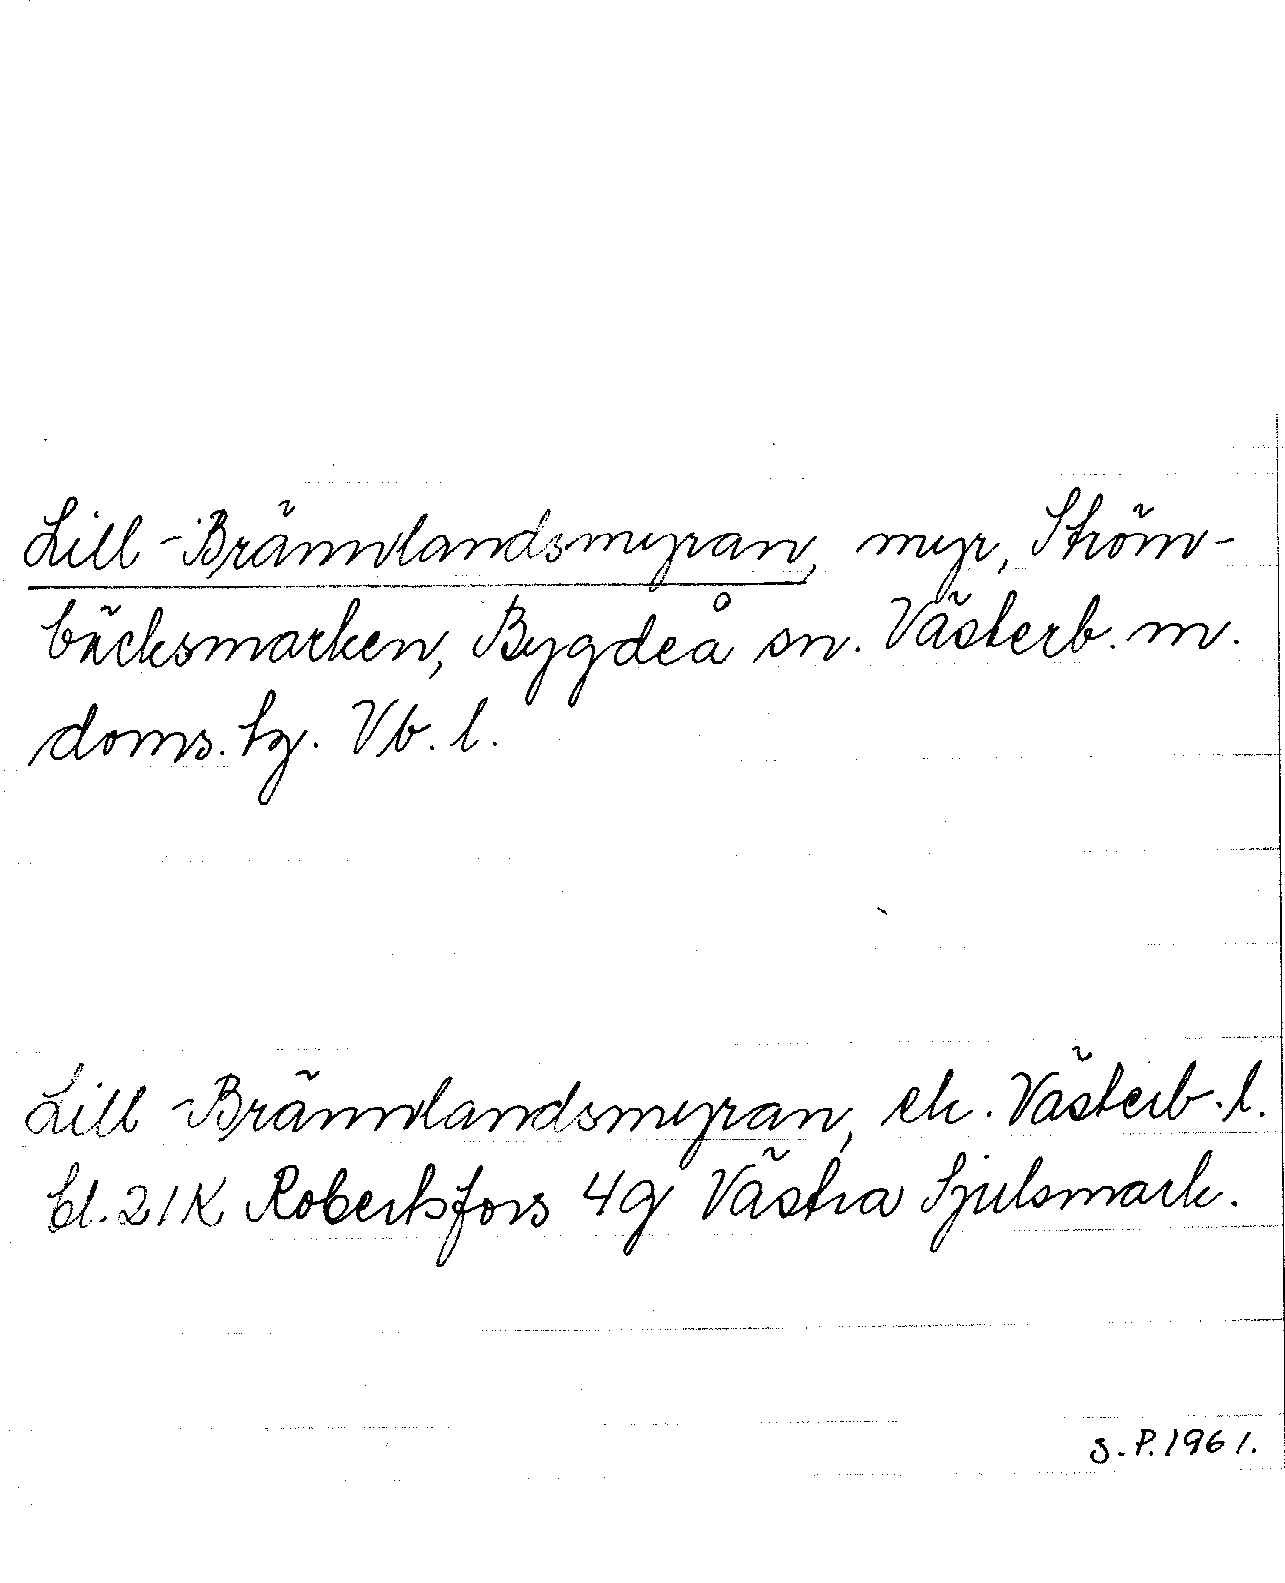 Lill-Brännlandsmyran, myr, Ström-
bäcksmarken, Bygdeå sn. Västerb. m.
doms. tg. Vb. l.
Lill-Brännlandsmyran, ek. Västerb. l.
bl. 21 K Robertsfors 4g Västra Sjulsmark.
g. P. 1961.